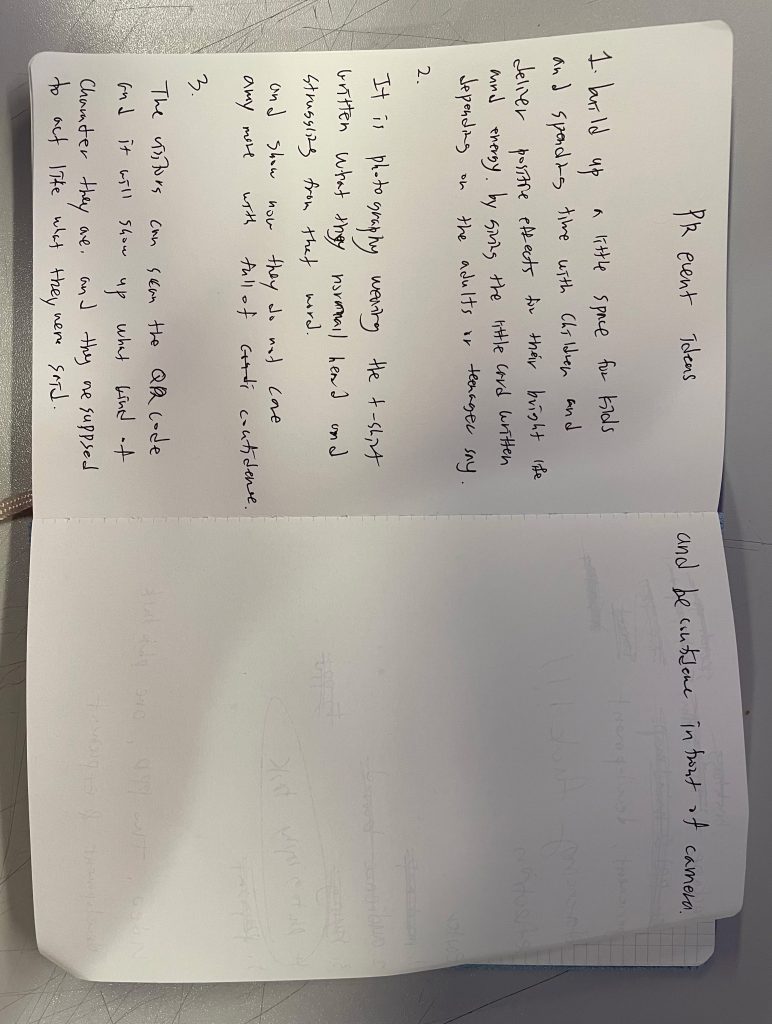 PR event ideas
1. build up a little space for kids
and spending time with children and
deliver positive effects for their bright life
and energy. by giving the little card written
depending on the adults or teenager say.
2.
It is photography wearing the t-shirt
written what they normal heard and
struggling from that word.
and show now they do not care
any more with full of confidence.
3.
The visitors can scan the QR code
and it will show up what kind of
Character they are. and they are supposed
to act like what they were said.
and be confidence in front of camera.